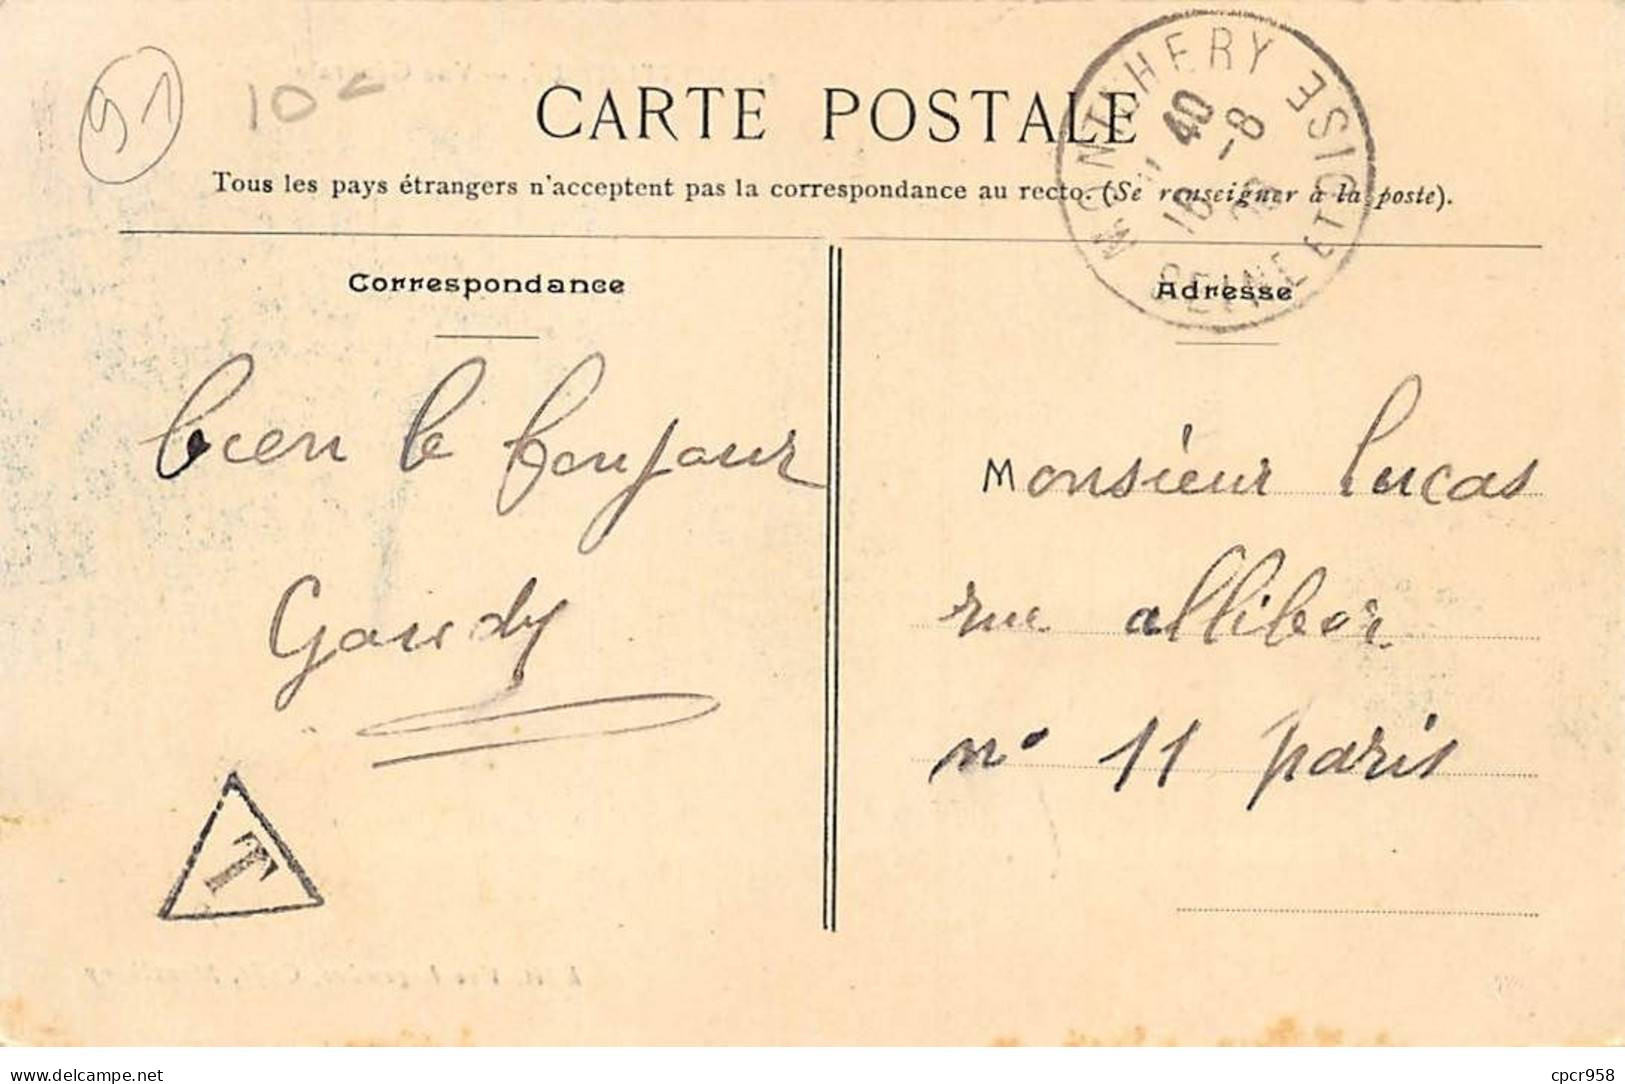 91
10c
CARTE POSTALE
Tous les pays étrangers n'acceptent pas la correspondance au recto. (Se renseigner à la poste).
MONTLHERY SEINE ET OISE
40
16 -8
Correspondance
Adresse
bien le bonjour
Gaudy
Monsieur Lucas
rue alliber
n° 11 paris
T
delcampe.net
cpcr958